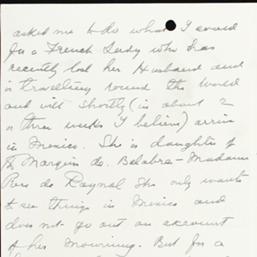 asked me to do what I could
for a French Lady who has
recently lost her Husband and
is travelling round the World
and will shortly (in about 2
or three weeks I believe) arrive
in Mexico. She is daughter of
the Marquis de Belabre - Madame
de Raynal She only wants
to see things in Mexico and
does not go out on account
of her Mourning. But for a